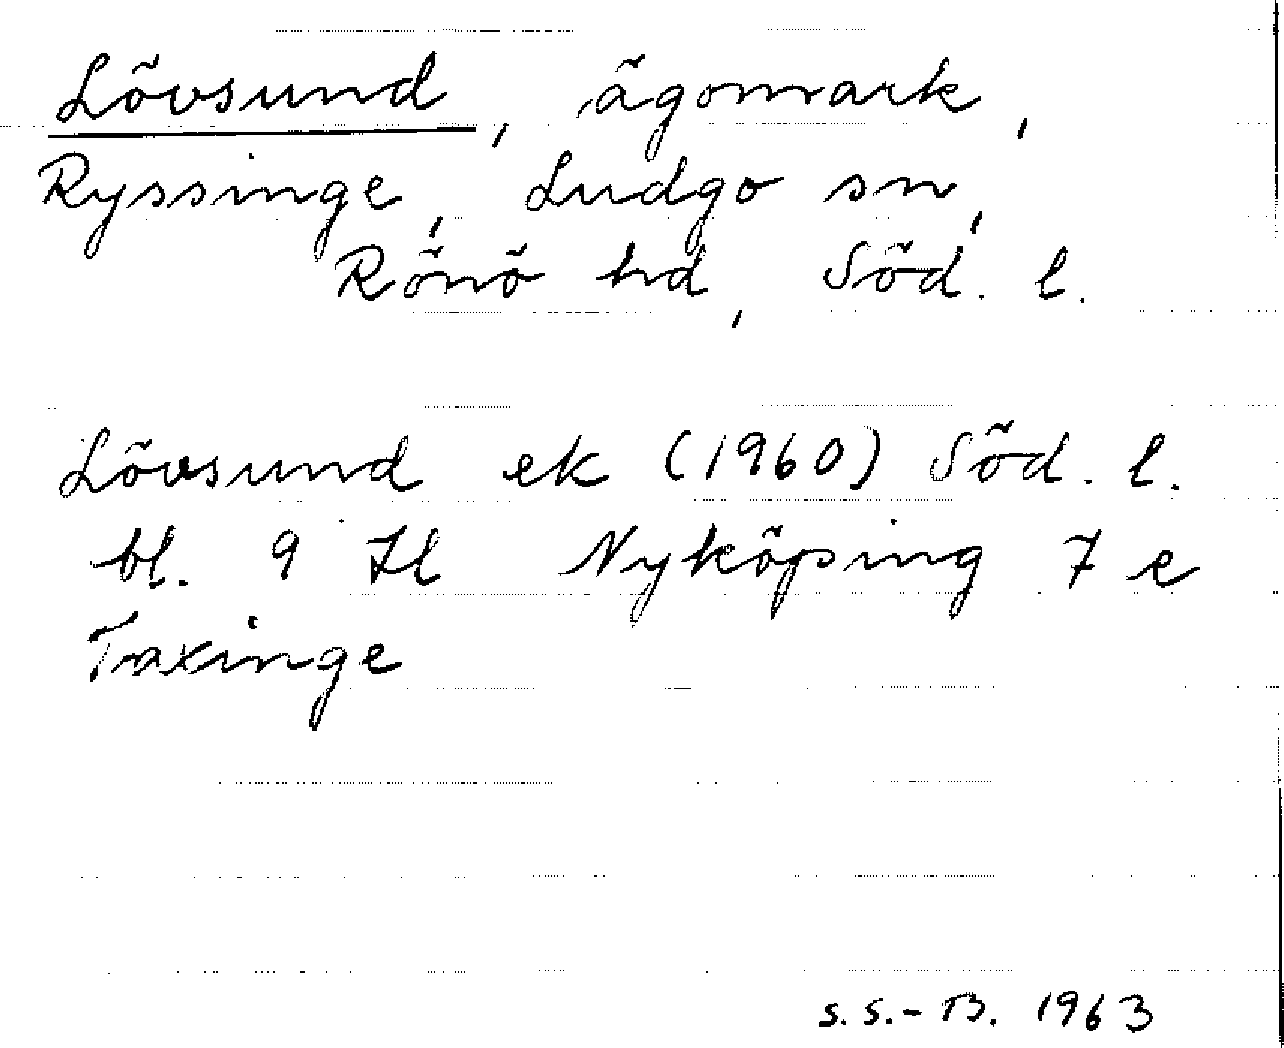 Lövsund, ägomark,
Ryssinge, Ludgo sn,
Rönö hd, Söd. l.
Lövsund ek (1960) Söd. l.
bl. 9 Hl Nyköping 7 e
Taxinge
S.S.-B. 1963